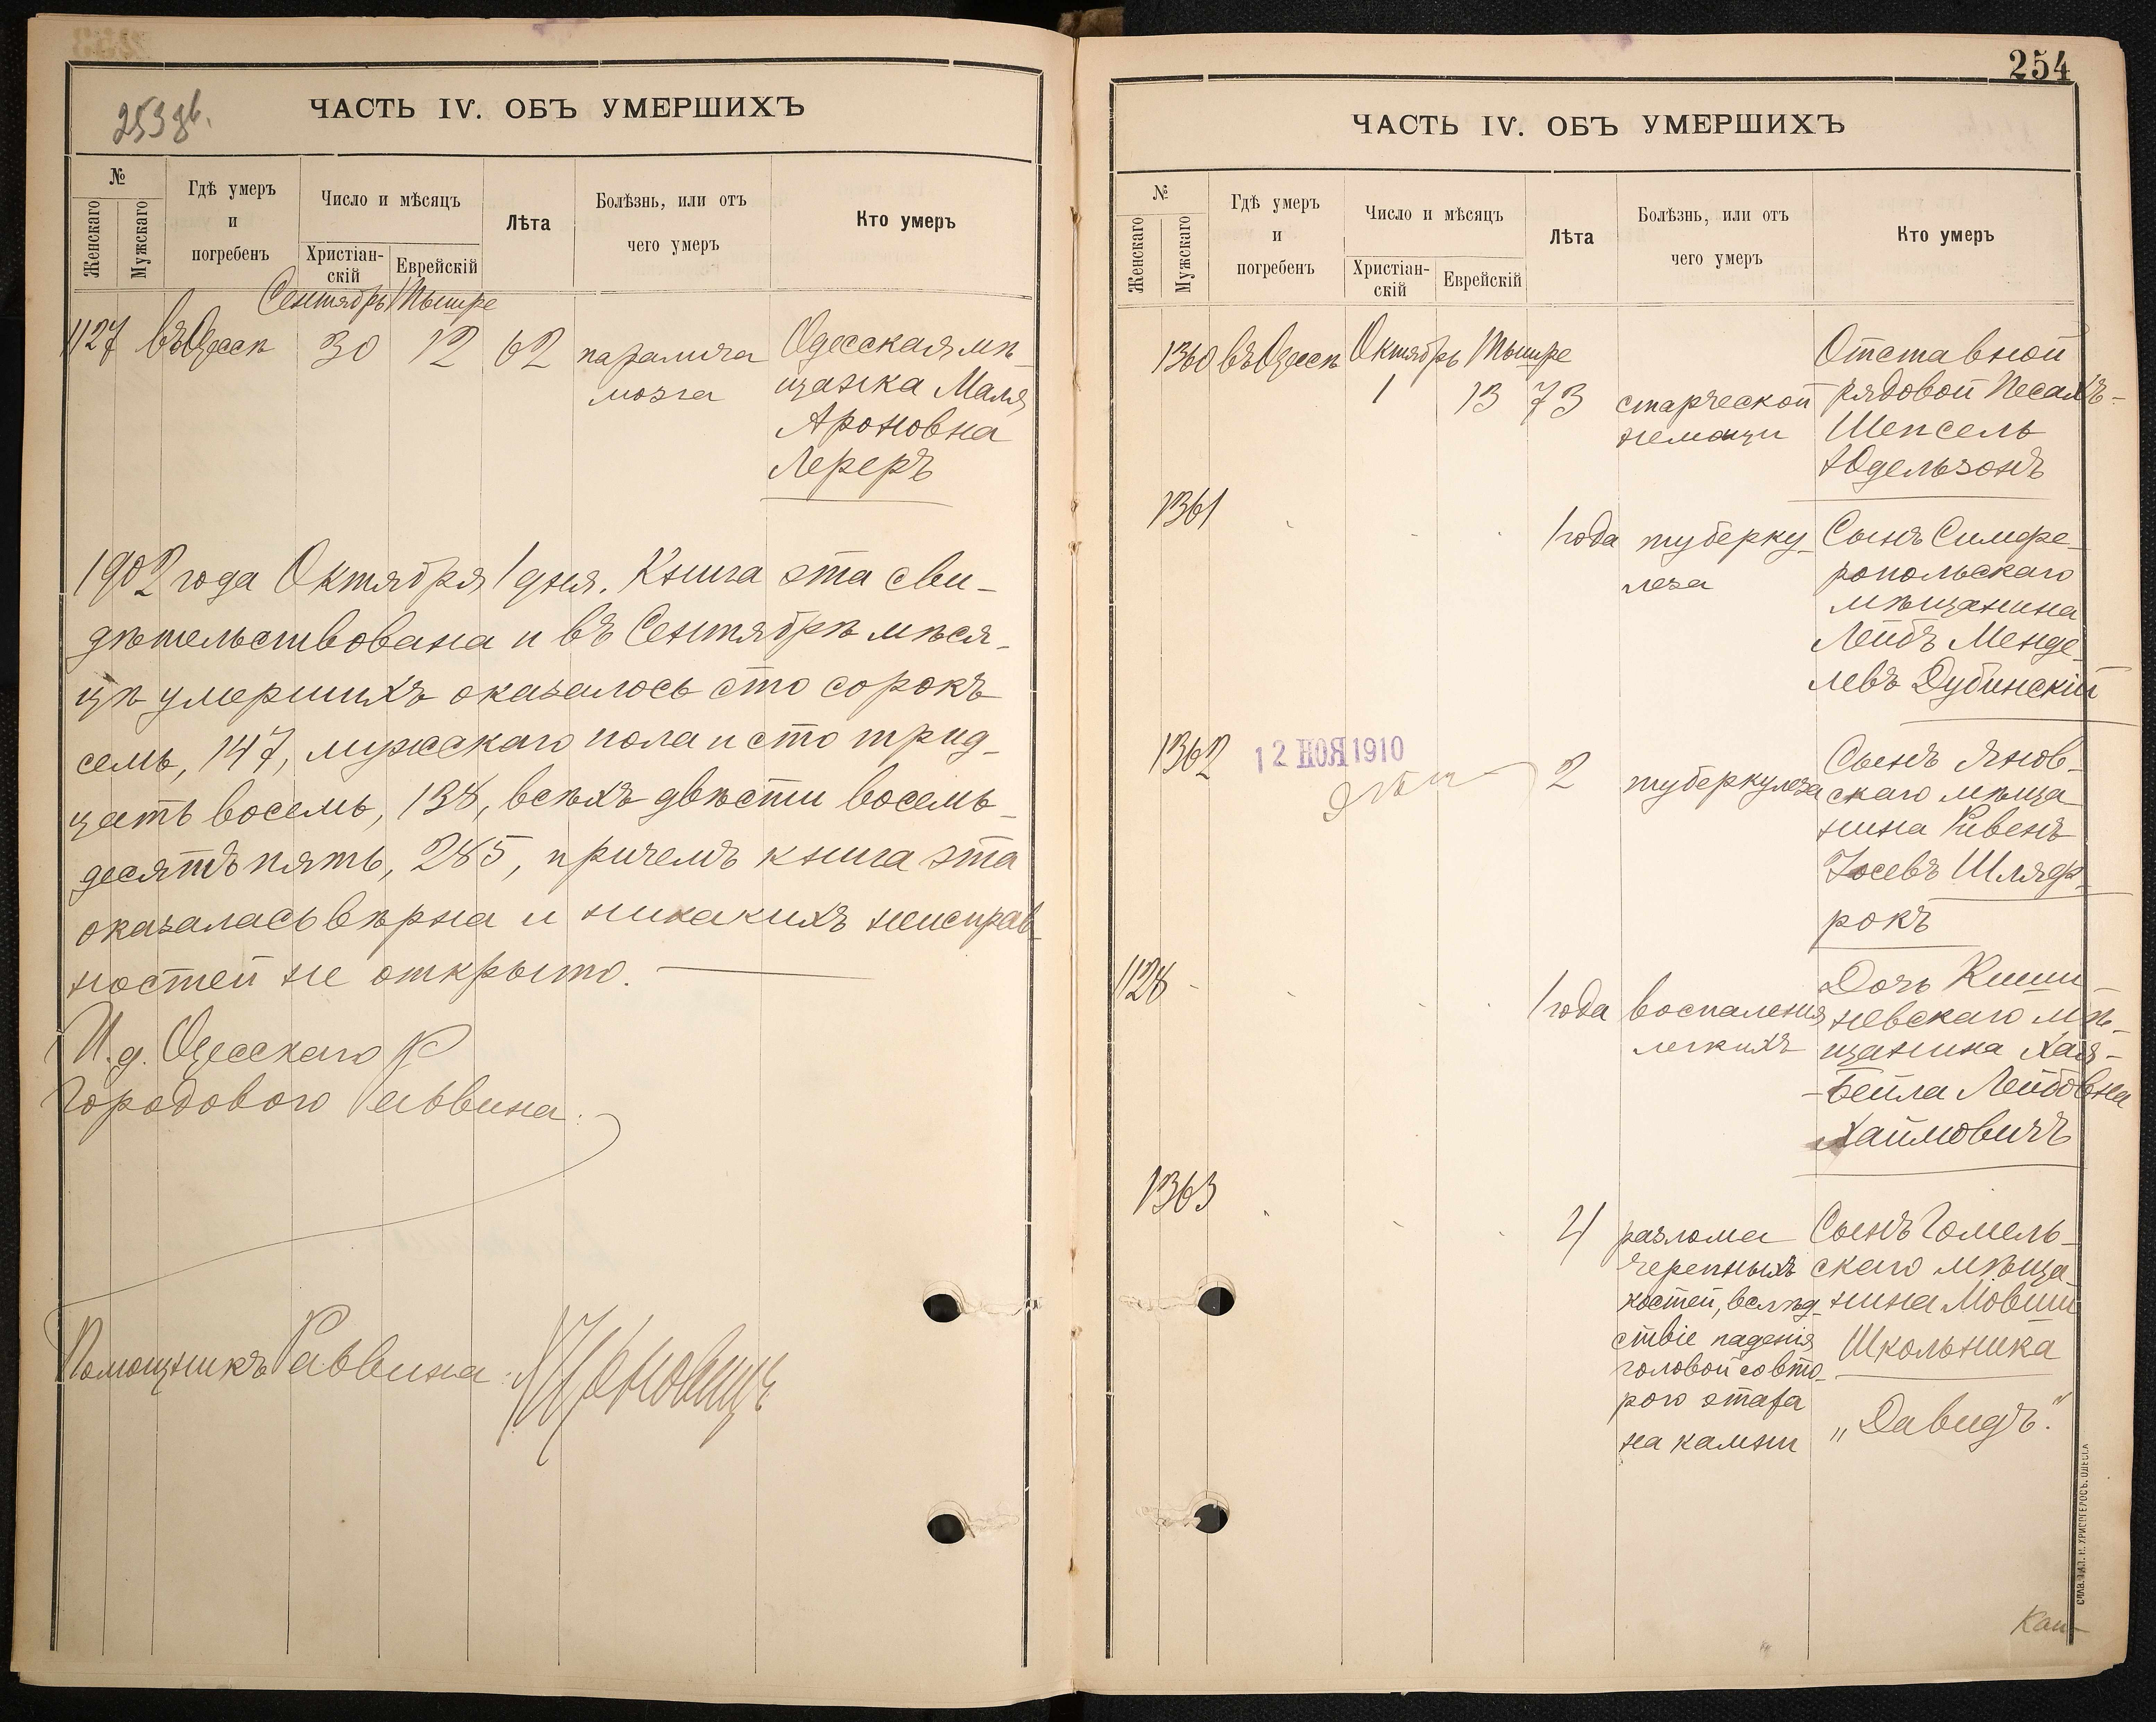 253 об.
ЧАСТЬ IV. ОБЪ УМЕРШИХЪ
№
Женскаго
Мужскаго
Гдѣ умеръ
и
погребенъ
Число и мѣсяцъ
Христіан-
скій
Еврейскій
Лѣта
Болѣзнь, или отъ
чего умеръ
Кто умеръ
Сентябрь Тышре
1127 въ Одессѣ 30 12 62 паралича Одесская мѣ-
мозга щанка Маля
Ароновна
Лереръ
1902 года Октября 1 дня. Книга эта сви-
дѣтельствована и въ Сентябрѣ мѣся-
цѣ умершихъ оказалось сто сорокъ
семь, 147, мужскаго пола и сто трид-
цать восемь, 138, всѣхъ двѣсти восемь-
десятъ пять, 285, причемъ книга эта
оказалась вѣрна и никакихъ неисправ-
ностей не открыто.
И. д. Одесскаго
Городового Раввина:
Помощникъ Раввина:
254
ЧАСТЬ IV. ОБЪ УМЕРШИХЪ
№
Женскаго
Мужскаго
Гдѣ умеръ
и
погребенъ
Число и мѣсяцъ
Христіан-
скій
Еврейскій
Лѣта
Болѣзнь, или отъ
чего умеръ
Кто умеръ
1360 въ Одессѣ Октябрь Тышре Отставной
1 13 73 старческой рядовой Песахъ-
немощи Шепсель
Юдельзонъ
1361
1 года туберку- Сынъ Симфе-
леза ропольскаго
мѣщанина
Лейбъ Менде-
левъ Дубинскій
1362 12 НОЯ 1910 2 туберкулеза Сынъ Янов-
скаго мѣща-
нина Рувенъ
Іосевъ Шляф-
рокъ
1128 1 года воспаленія Дочь Киши-
легкихъ невскаго мѣ-
щанина Хая-
-Бейла Лейбовна
Хаймовичъ
1363
4 разлома Сынъ Гомель-
черепныхъ скаго мѣща-
костей, вслѣд- нина Мовши
ствіе паденія Школьника
головой со вто-
рого этажа „Давидъ".
на камни
СЛАВ. ТИП. Н. ХРИСОГЕЛОСЪ. ОДЕССА